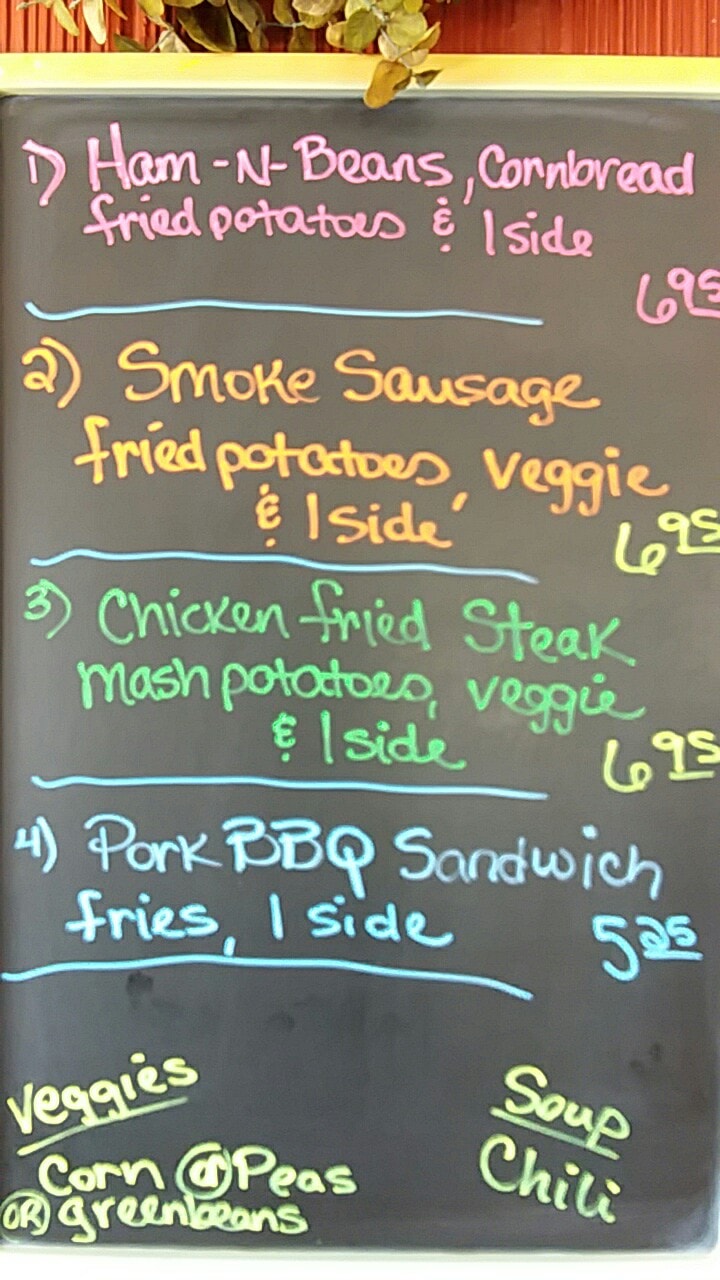 1) Ham-N-Beans, Cornbread
fried potatoes & 1 side
6.95
2) Smoke Sausage
fried potatoes, veggie
& 1 side
6.95
3) Chicken fried Steak
mash potatoes, veggie
& 1 side
6.95
4) Pork BBQ Sandwich
fries, 1 side
5.25
Veggies
Corn or Peas
OR greenbeans
Soup
Chili